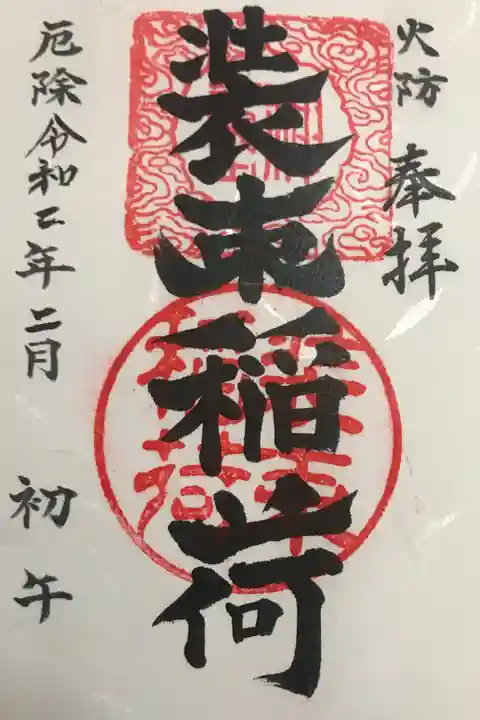 火防 奉拝
装束稲荷
厄除 令和二年 二月 初午